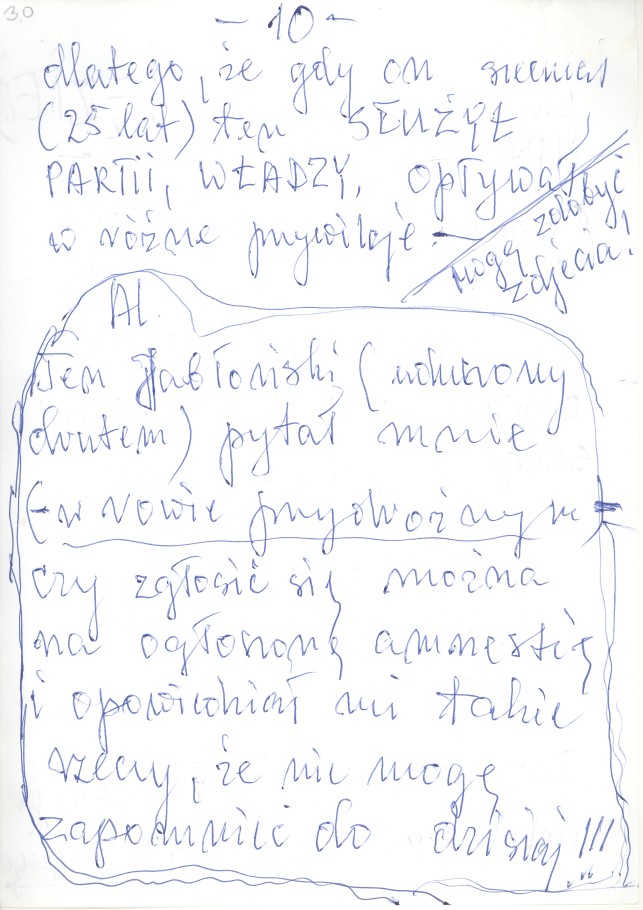 30
- 10 -
dlatego, że gdy on siedział
(25 lat) ten SŁUŻYŁ
PARTII, WŁADZY, opływał
w różne przywileje. -
mogę zdobyć
zdjęcia!
Al.
Ten Jabłoński (uduszony
drutem) pytał mnie
(- w rowie przydrożnym)
czy zgłosić się można
na ogłoszoną amnestię
i opowiedział mi takie
rzeczy, że nie mogę
zapomnieć do dzisiaj!!!